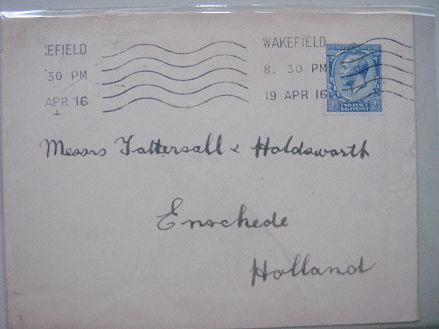 EFIELD
30 PM
APR 16
WAKEFIELD
8. 30 PM
19 APR 16
TWO PENCE
HALFPENNY
Messrs Tattersall & Holdsworth
Enschede
Holland